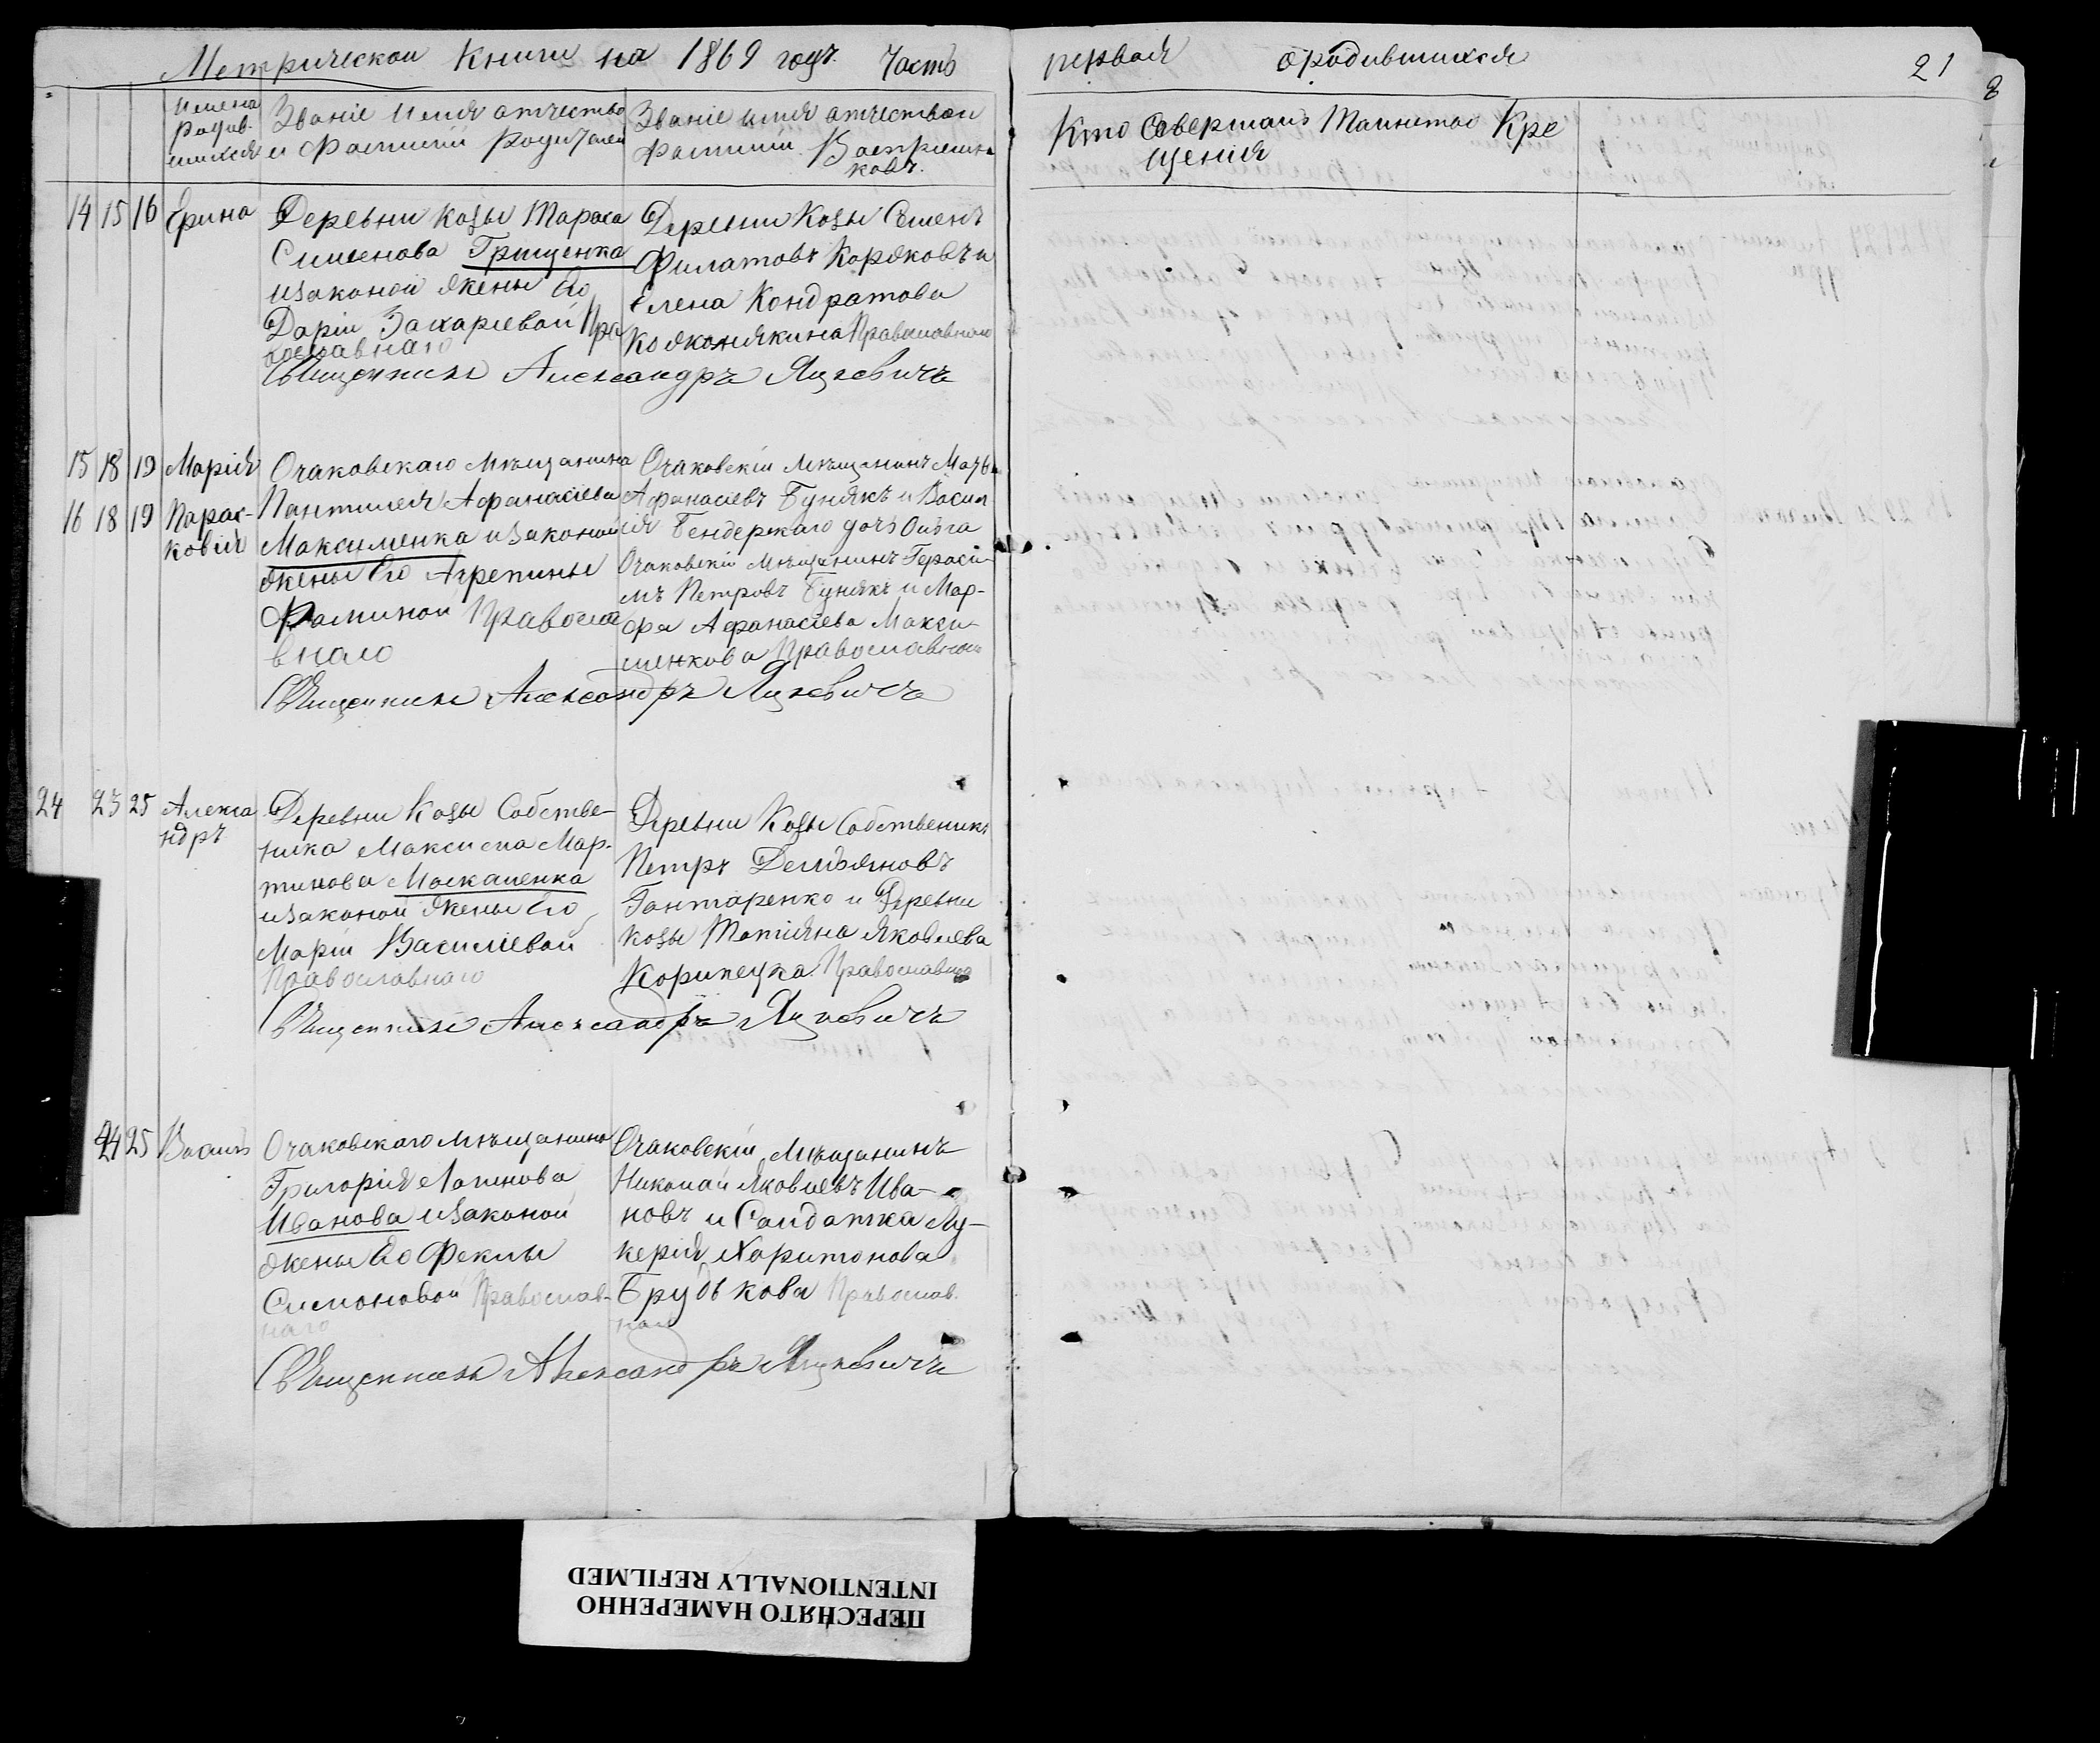 Метрической Книги на 1869 годъ. Часть первая о родившихся 21
Имена родив- шихся
Званіе Имя отчество и Фамиліи Родителей
Званіе имя отчество и фамиліи Восприемни- ковъ.
Кто Совершалъ Таинство Кре
щения
14 15 16 Ерина
Деревни Козы Тараса
Сименова Грищенка
изаконой жены Его
Даріи Захаріевой Пра
вославнаго
Деревни Козы Семенъ
Филатовъ Коряковъ и
Елена Кондратова
Православного
Священникъ Александръ Яцкевичъ
15 18 19 Марія
16 18 19 Парас-
ковія
Очаковскаго Мѣщанина
Пантилея Афанасіева
Максименка изаконой
жены Его Агрепины
Фоминой Правосла
внаго
Очаковскій Мѣщанинъ
Афанасіевъ Бунякъ и Васил
ія Бендержаго дочь Ольга
Очаковскій Мѣщанинъ Гераси-
мъ Петровъ Бунякъ и Мар-
фа Афанасіева Макси-
менкова Православнаго
Священникъ Александръ Яцкевичъ
24 23 25 Алекса
ндръ
Деревни Козы Собстве-
ника Максима Мар-
тинова Москаленка
изаконой жены Его
Маріи Василіевой
Православнаго
Деревни Козы Собственикъ
Петръ Демьяновъ
Гонтаренко и Деревни
Козы Татіяна Яковлева
Корипецка Православнаго
Священникъ Александръ Яцкевичъ
24 25 Василъ
Очаковскаго мѣщанина
Григорія Логинова
Иванова изаконой
жены Его Феклы
Симоновой Православ-
наго
Очаковскій Мѣщанинъ
Николай Яковлевъ Ива-
новъ и Солдатка Лу-
керія Харитонова
Брудькова Православ.
наго
Священникъ Александръ Яцкевичъ
ПЕРЕСНЯТО НАМЕРЕННО
INTENTIONALLY REFILMED